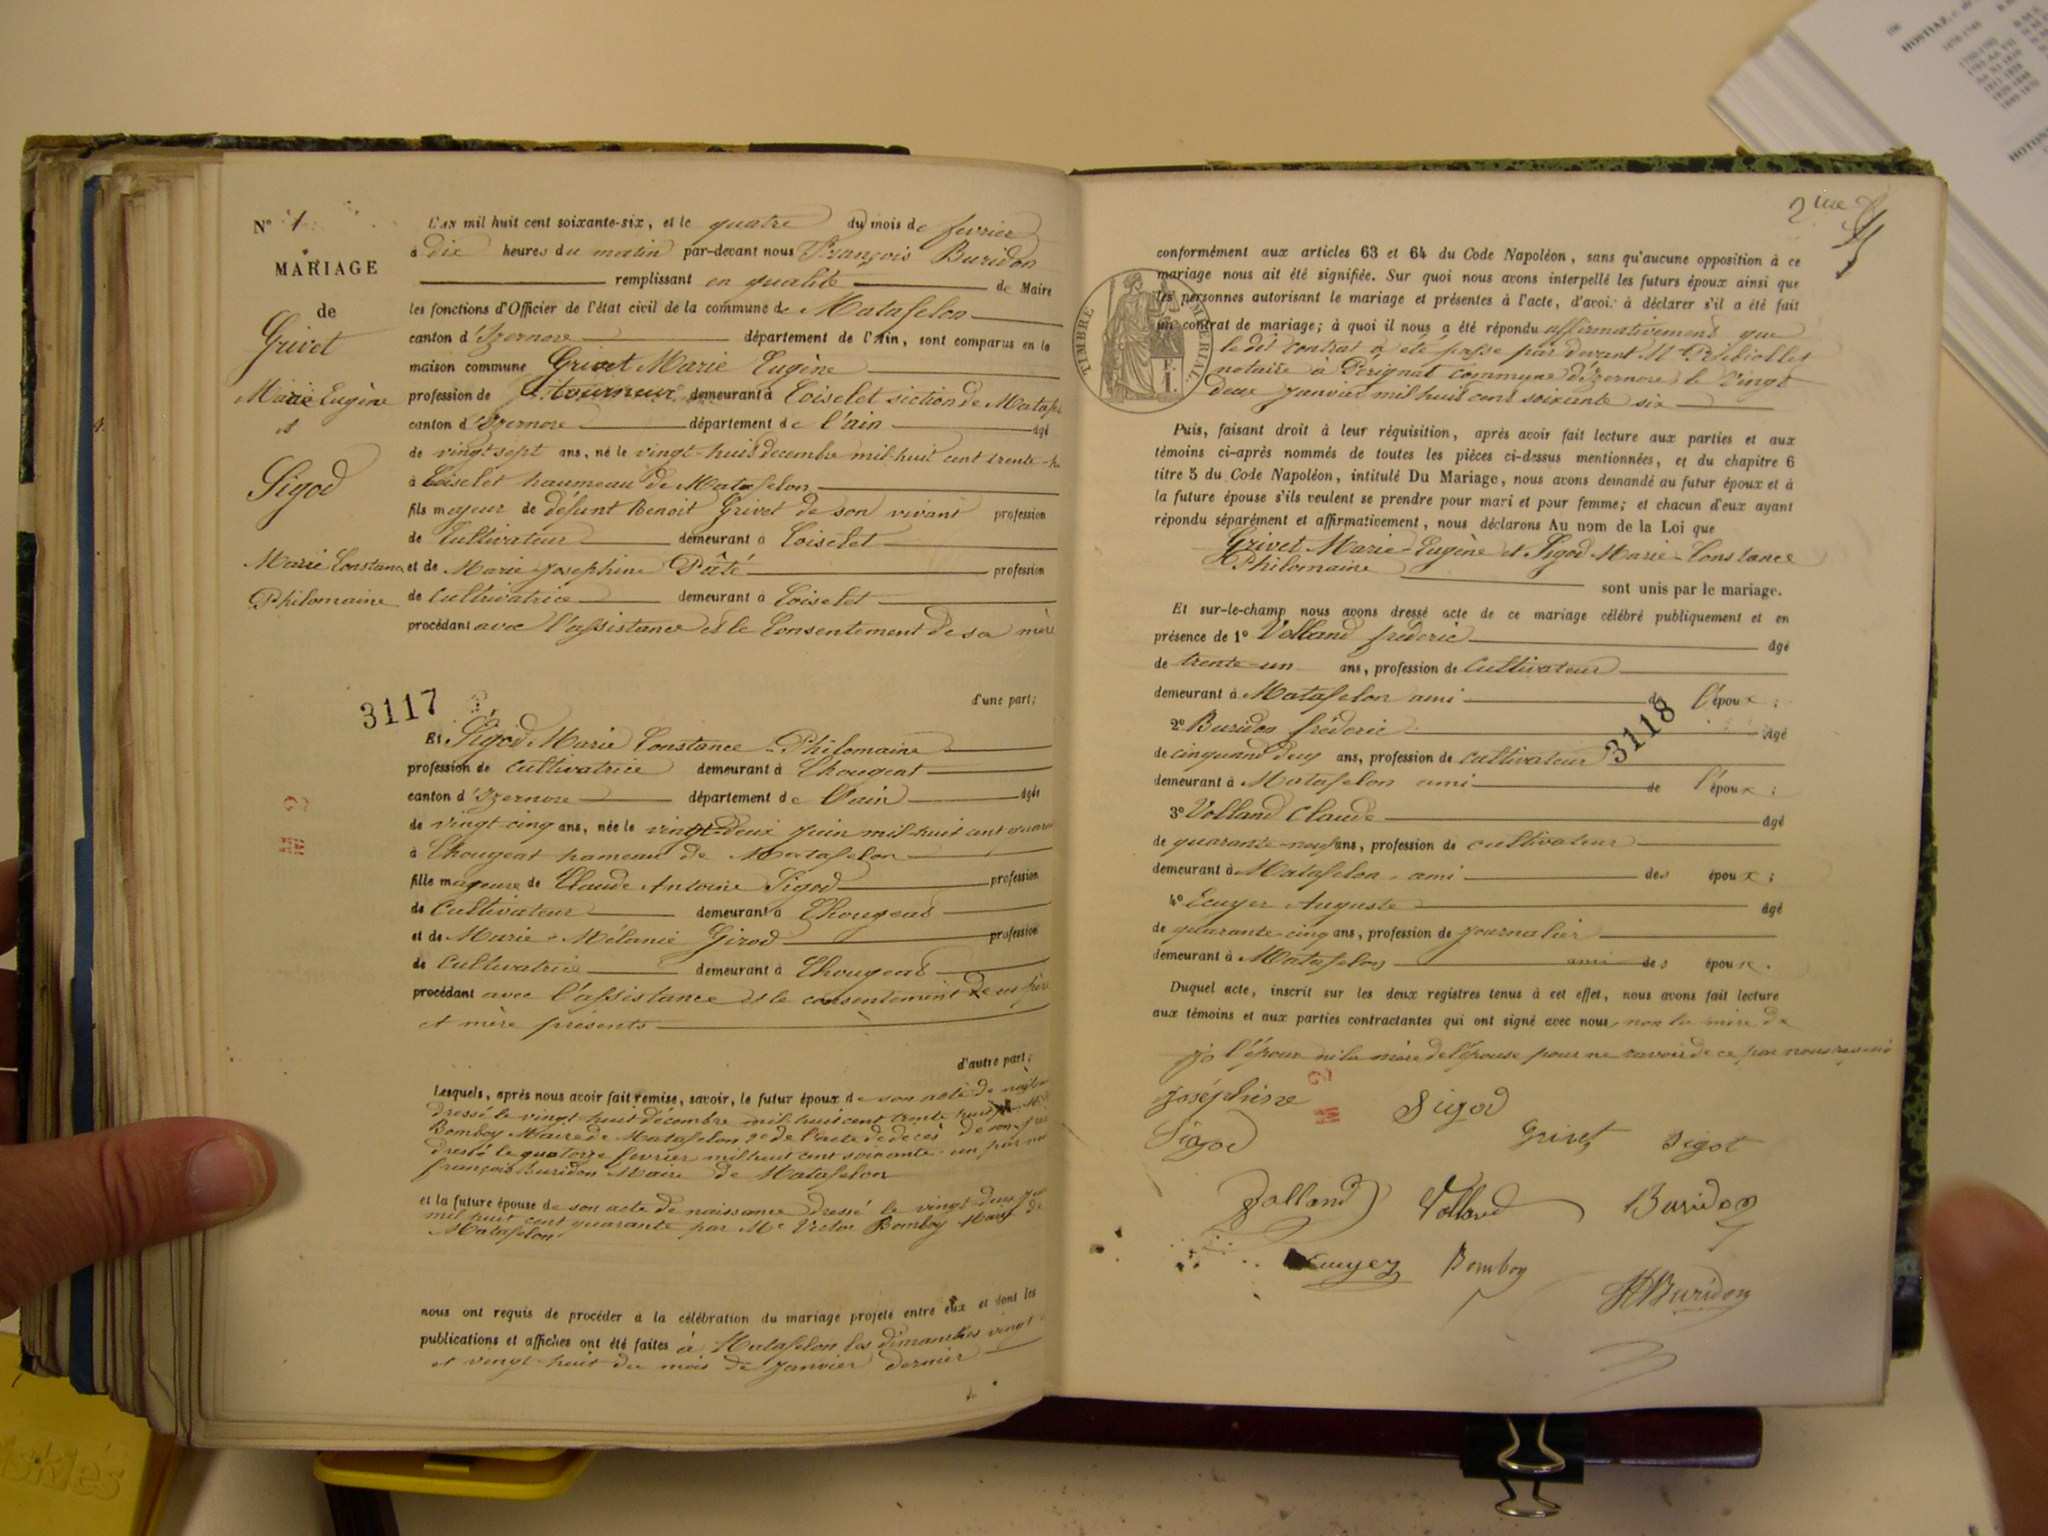 N° 1
MARIAGE
de
Grivet
Marie Eugène
et
Sigod
Marie Constance
Philomaine
L'AN mil huit cent soixante-six, et le quatre du mois de fevrier
à dix heures du matin par-devant nous François Buridon
remplissant en qualité de Maire
les fonctions d'Officier de l'état civil de la commune de Matafelon
canton d'Izernore département de l'Ain, sont comparus en la
maison commune Grivet Marie Eugène
profession de tourneur demeurant à Coiselet section de Mataf
canton d'Izernore département de l'ain âgé
de vingt sept ans, né le vingt-huit decembre mil huit cent trente-h
à Coiselet haumeau de Matafelon
fils majeur de défunt Benoit Grivet de son vivant profession
de Cultivateur demeurant à Coiselet
et de Marie Josephine Pûté profession
de Cultivatrice demeurant à Coiselet
procédant avec l'assistance et le Consentement de sa mère
d'une part;
3117
Et Sigod Marie Constance Philomaine
profession de cultivatrice demeurant à Chougeat
canton d'Izernore département de l'ain âgée
de vingt-cinq ans, née le vingt-deux juin mil-huit cent quara
à Chougeat hameau de Matafelon
fille majeure de Claude Antoine Sigod profession
de Cultivateur demeurant à Chougeat
et de Marie-Mélanie Girod profession
de Cultivatrice demeurant à Chougeat
procédant avec l'assistance et le consentement de ses père
et mère présents
d'autre part;
Lesquels, après nous avoir fait remise, savoir, le futur époux de son acte de
dressé le vingt-huit décembre mil huit cent trente huit
Bomboy Maire de Matafelon 2° de l'acte de décès de son père
dressé le quatorze fevrier mil huit cent soixante-un par
françois Buridon Maire de Matafelon
et la future épouse de son acte de naissance dressé le vingt deux
mil huit cent quarante par Mr Victor Bomboy Maire de
Matafelon
nous ont requis de procéder à la célébration du mariage projeté entre eux et dont les
publications et affiches ont été faites à Matafelon les dimanches vingt
et vingt-huit du mois de janvier dernier
conformément aux articles 63 et 64 du Code Napoléon, sans qu'aucune opposition à ce
mariage nous ait été signifiée. Sur quoi nous avons interpellé les futurs époux ainsi que
les personnes autorisant le mariage et présentes à l'acte, d'avoir à déclarer s'il a été fait
un contrat de mariage; à quoi il nous a été répondu affirmativement que
le dit contrat a été passé par devant Mr
notaire à Pérignat commune d'Izernore, le vingt
deux janvier mil huit cent soixante six
TIMBRE IMPÉRIAL
Puis, faisant droit à leur réquisition, après avoir fait lecture aux parties et aux
témoins ci-après nommés de toutes les pièces ci-dessus mentionnées, et du chapitre 6
titre 5 du Code Napoléon, intitulé Du Mariage, nous avons demandé au futur époux et à
la future épouse s'ils veulent se prendre pour mari et pour femme; et chacun d'eux ayant
répondu séparément et affirmativement, nous déclarons Au nom de la Loi que
Grivet Marie-Eugène et Sigod Marie-Constance
Philomaine
sont unis par le mariage.
Et sur-le-champ nous avons dressé acte de ce mariage célébré publiquement et en
présence de 1° Volland fréderic âgé
de trente-un ans, profession de cultivateur
demeurant à Matafelon ami de l'époux;
2° Buridon fréderic âgé
de cinquand deux ans, profession de cultivateur
3118
demeurant à Matafelon ami de l'époux;
3° Volland Claude âgé
de quarante-neuf ans, profession de cultivateur
demeurant à Matafelon ami des époux;
4° Ecuyer Auguste âgé
de quarante-cinq ans, profession de journalier
demeurant à Matafelon ami des époux.
Duquel acte, inscrit sur les deux registres tenus à cet effet, nous avons fait lecture
aux témoins et aux parties contractantes qui ont signé avec nous, non la mère de
l'époux ni la mère de l'épouse pour ne savoir de ce par nous requis
joséphine
Sigod
Sigod
Grivet
Sigot
Volland
Volland
Buridon
Ecuyer
Bomboy
Buridon